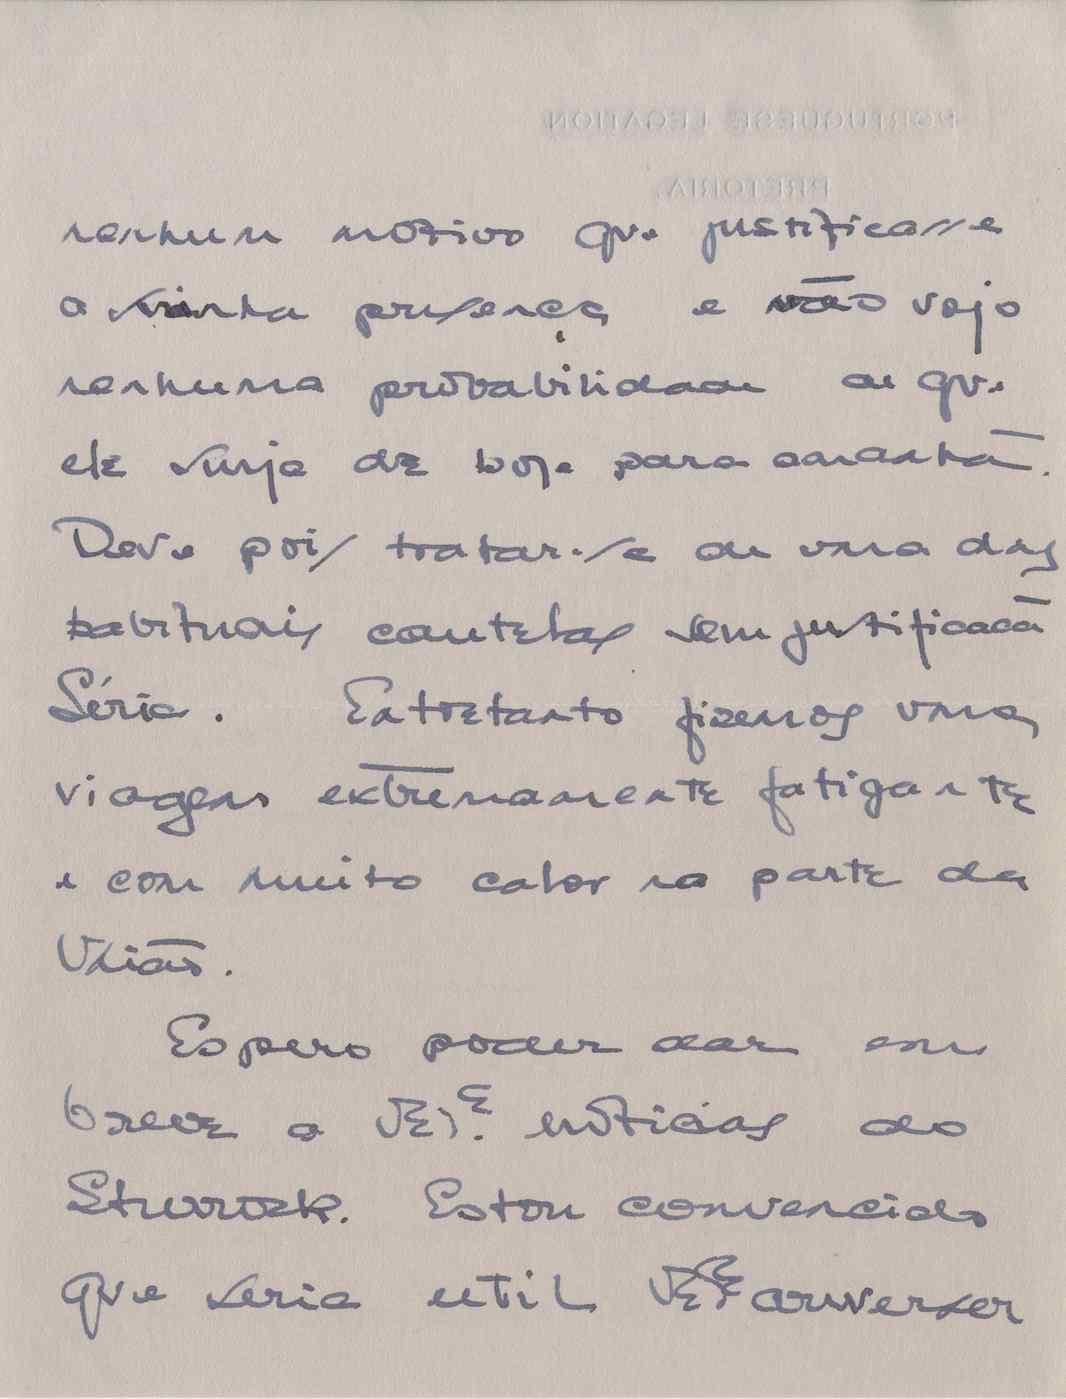 PORTUGUESE LEGATION
PRETORIA.
nenhum motivo que justificasse
a minha presença e não vejo
nenhuma probabilidade de que
ele surja de hoje para amanhã.
Deve pois tratar-se de uma das
habituais cautelas sem justificacã
Séria. Entretanto fizemos uma
viagem extremamente fatigante
e com muito calor na parte da
União.
Espero poder dar em
breve a V. Exª noticias do
Sturrock. Estou convencido
que seria util V. Exª